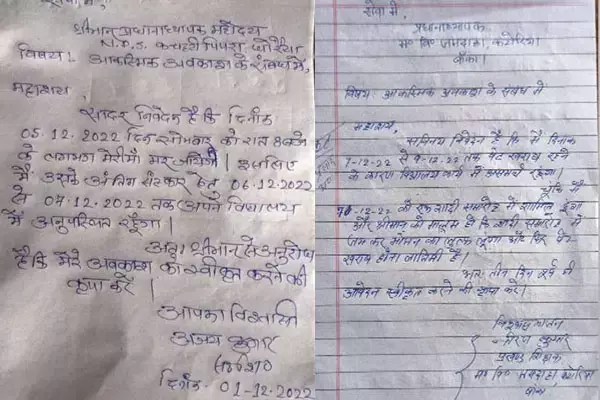 सेवा में,
श्रीमान् प्रधानाध्यापक महोदय
N.P.S. कचहरी पिपरा
विषय:- आकस्मिक अवकाश के संबंध में,
महाशय
सादर निवेदन है कि दिनांक
05.12.2022 दिन सोमवार को रात 8 बजे
के लगभग मेरी माँ मर जायेगी। इसलिए
मैं उसके अंतिम संस्कार हेतु 06.12.2022
से 07.12.2022 तक अपने विद्यालय
में अनुपस्थित रहूँगा।
अतः श्रीमान से अनुरोध
है कि मेरे अवकाश को स्वीकृत करने की
कृपा करें।
आपका विश्वासी
अजय कुमार
दिनांक- 01-12-2022
सेवा में,
प्रधानाध्यापक
म० वि० कटोरिया
बाँका।
विषय: आकस्मिक अवकाश के संबंध में
महाशय,
सविनय निवेदन है कि मैं दिनांक
7-12-22 से 9-12-22 तक पेट खराब रहने
के कारण विद्यालय कार्य में असमर्थ रहूंगा।
चूँकि मैं
-12-22 को एक शादी समारोह में शामिल हूंगा
और श्रीमान को मालूम है कि शादी समारोह में
जम कर भोजन का लुत्फ लूंगा और फिर पेट
खराब होना लाजिमी है।
अतः तीन दिन पूर्व में
आवेदन स्वीकृत करने की कृपा करें।
विश्वासभाजन
नीरज कुमार
प्रखंड शिक्षक
म० वि० कटोरिया
बाँका